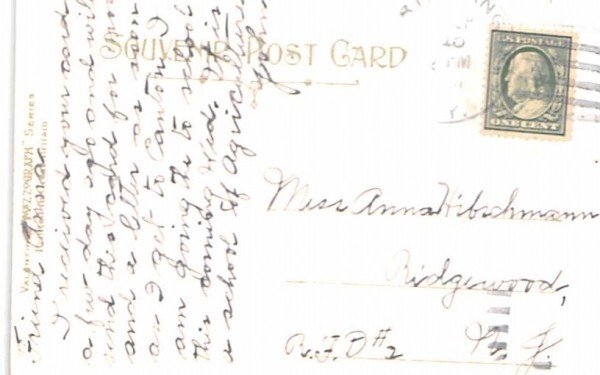 SOUVENIR POST CARD
U.S. POSTAGE
ONE CENT
VALENTINE'S "MEZZOGRAPH" SERIES
Friend Anna
I recieved your card
a few days ago and will
send this card for now
and a letter as soon
as I get to Canton I
am going to school
this coming Wed. It is
a school of Agriculture
John
Miss Anna Hibschmann
Ridgewood,
R.F.D #2 N. Y.